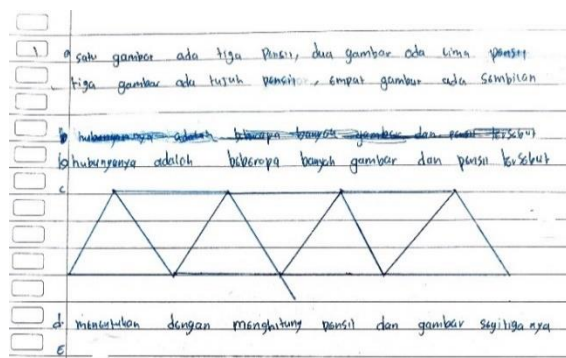 1 a satu gambar ada tiga Pensil, dua gambar ada lima pensil
tiga gambar ada tujuh pensil, empat gambar ada sembilan
b hubungannya adalah beberapa banyak gambar dan pensil tersebut
b hubunganya adalah beberapa banyak gambar dan pensil tersebut
c
d. menentukan dengan menghitung pensil dan gambar segitiga nya
e